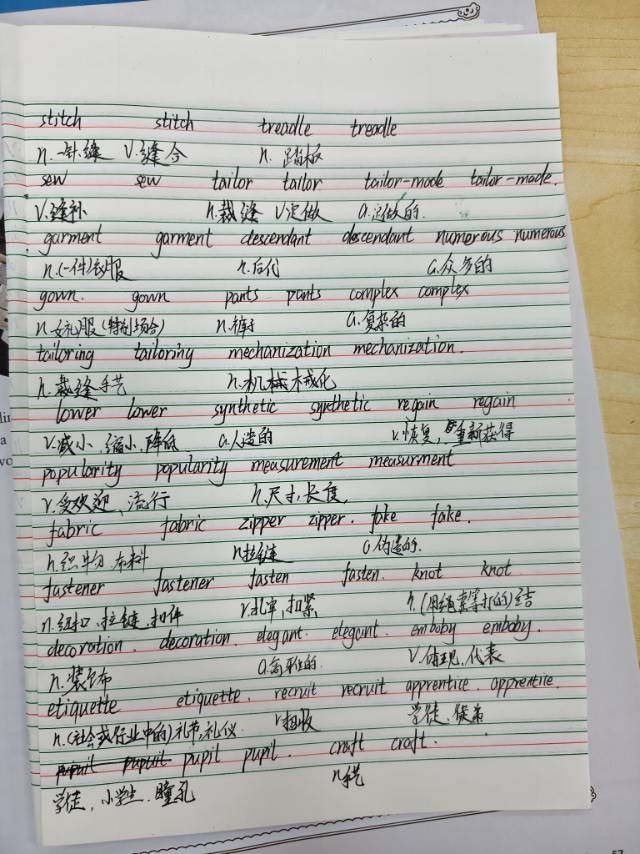 stitch stitch treadle treadle
n. 一针,缝 v.缝合 n. 踏板
sew sew tailor tailor tailor-made tailor-made.
v.缝补 n.裁缝 v定做 a.定做的.
garment garment descendant descendant numerous numerous
n.(一件)衣服 n.后代 a.众多的
gown. gown pants pants complex complex
n.女礼服(特别场合) n.裤子 a.复杂的
tailoring tailoring mechanization mechanization.
n.裁缝手艺 n.机械化
lower lower synthetic synthetic regain regain
v.减小,缩小,降低 a.人造的 v.恢复,重新获得
popularity popularity measurement measurment
v.受欢迎,流行 n.尺寸,长度,
fabric fabric zipper zipper. fake fake.
n.织物 布料 n拉链 a伪造的.
fastener fastener fasten fasten. knot knot
n.纽扣,拉链,扣件 v.扎牢,扣紧 n.(用绳索等打的)结
decoration. decoration. elegant. elegant. emboby emboby.
n.装饰 a.高雅的 v.体现,代表
etiquette etiquette. recruit recruit apprentice. apprentice.
n.(社会或行业中的)礼节,礼仪 v招收 学徒,徒弟
pupil pupil. craft craft.
学徒,小学生.瞳孔 n手艺